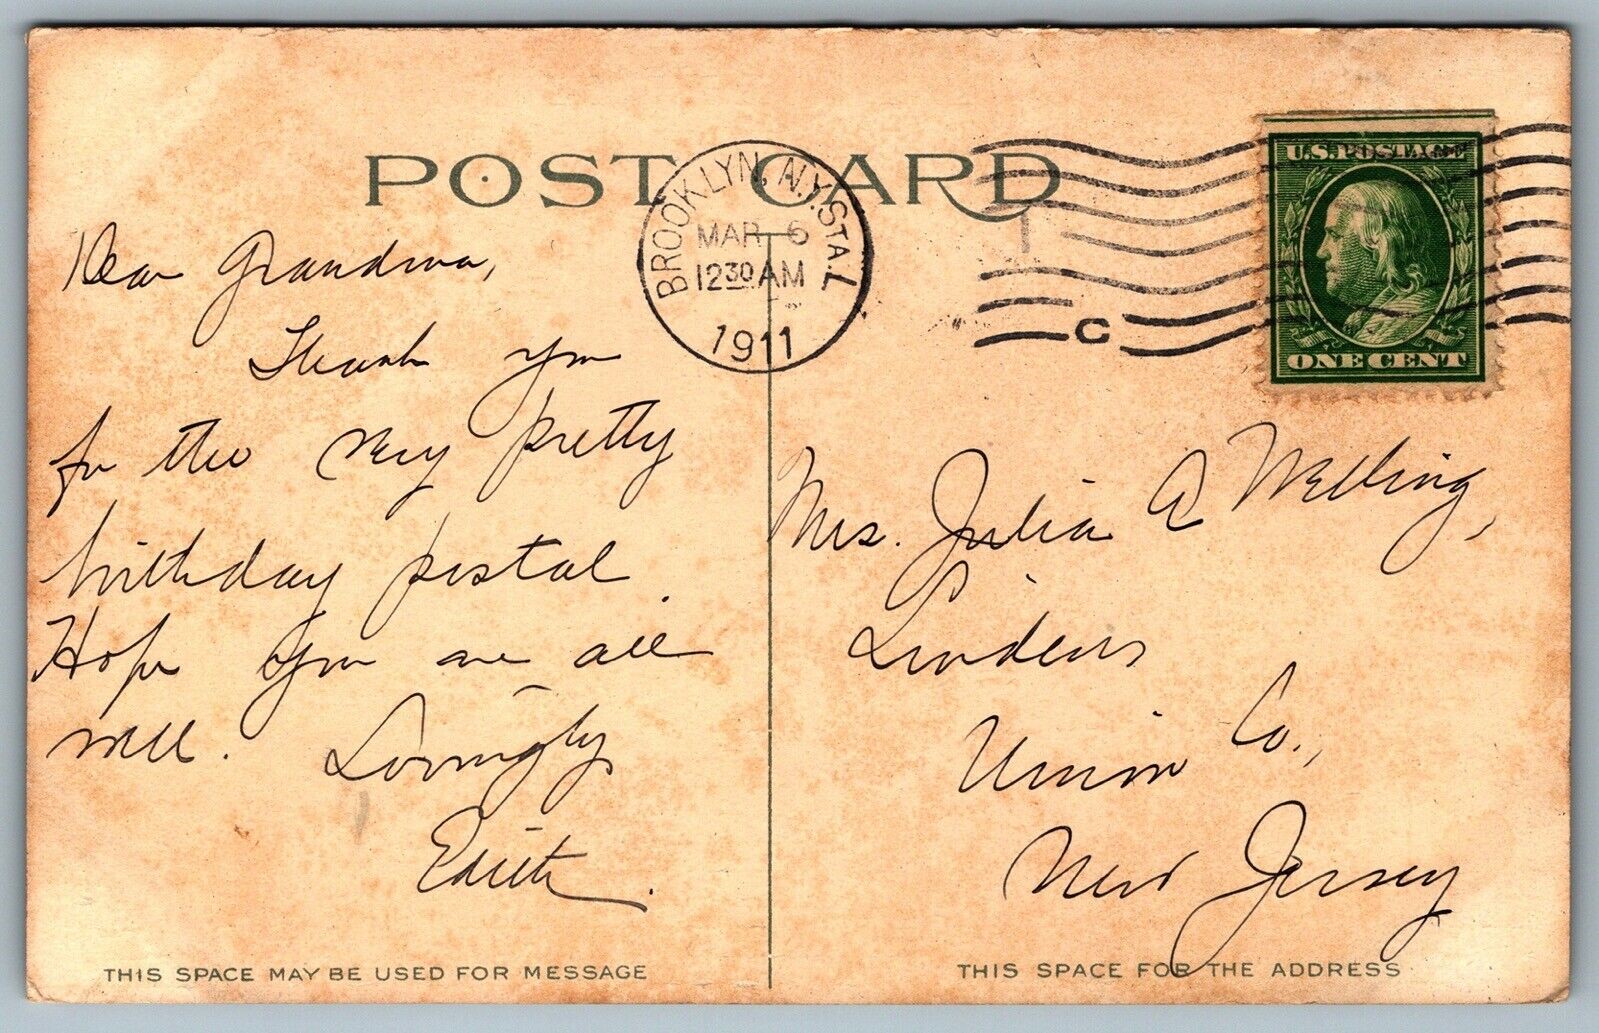 POST CARD
BROOKLYN, N.Y. STA. L
MAR 6
12 30 AM
1911
C
U.S. POSTAGE
ONE CENT
Dear Grandma,
Thank you
for the very pretty
birthday postal.
Hope you are all
well. Lovingly
Edith.
Mrs. Julia A Welling,
Lindens
Union Co.,
New Jersey
THIS SPACE MAY BE USED FOR MESSAGE
THIS SPACE FOR THE ADDRESS